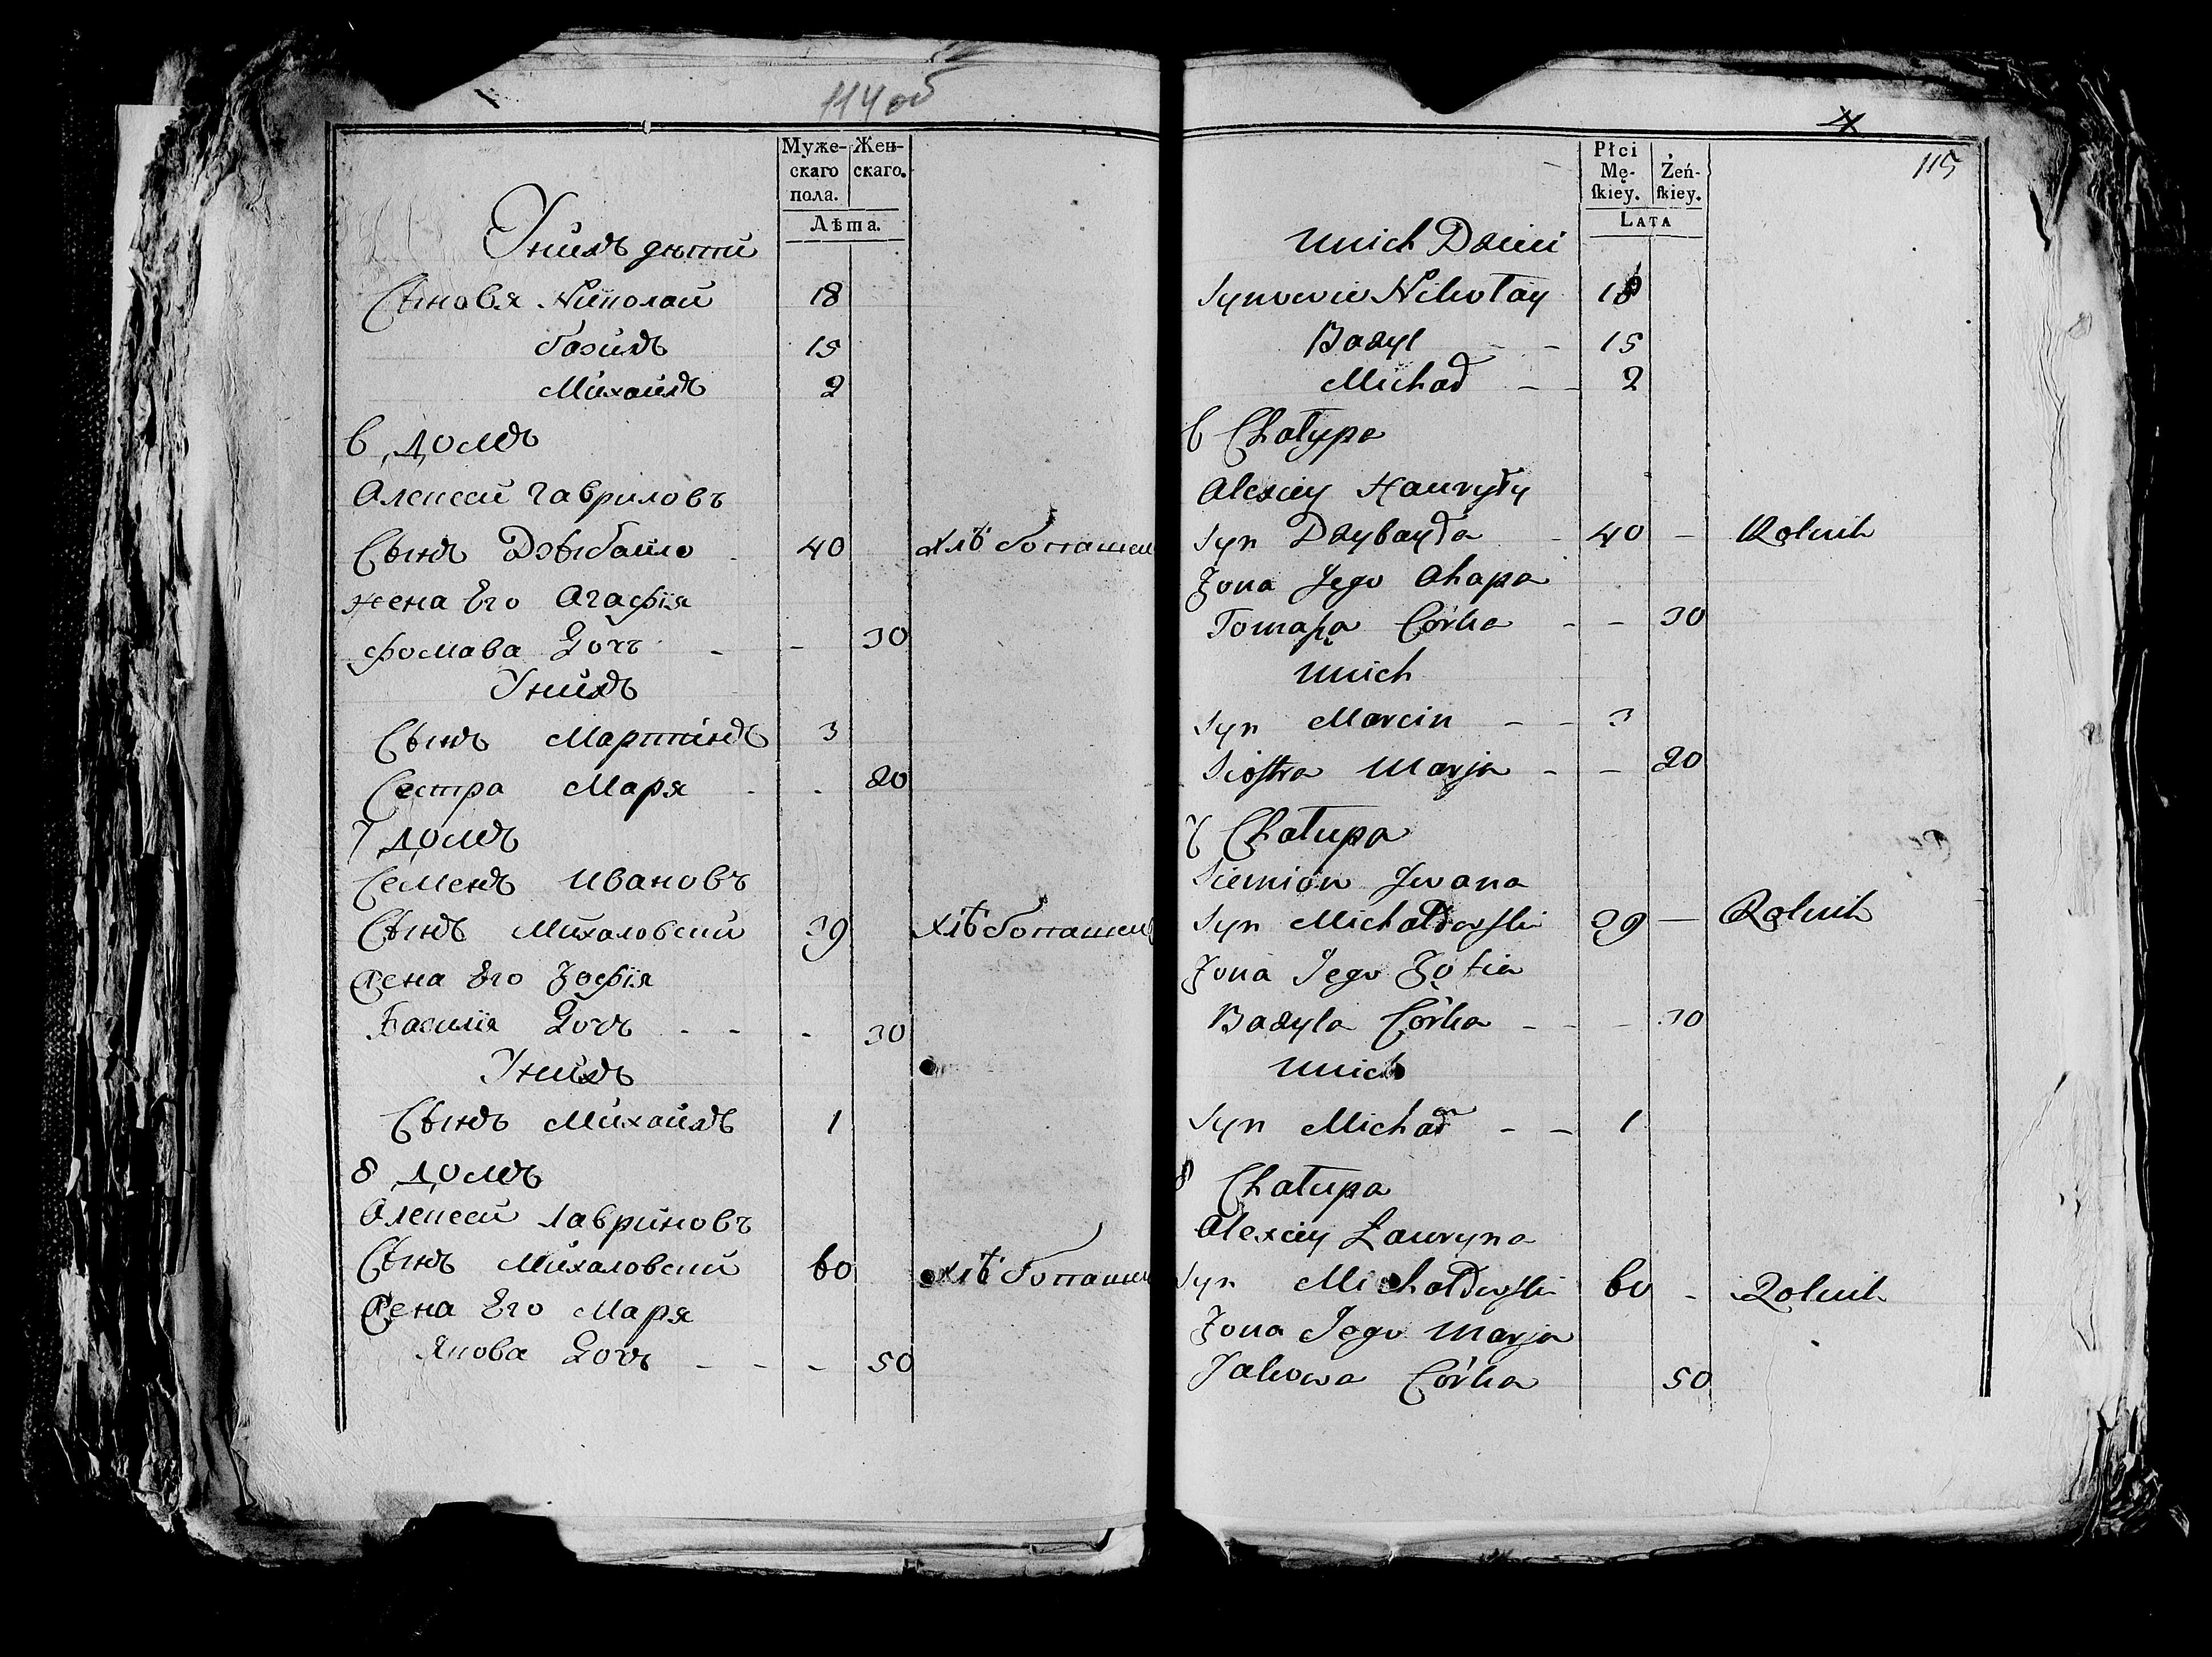 114 об
Муже-
скаго
пола.
Жен-
скаго.
Лѣта.
Унихъ дѣти
Сыновя Николай 18
базилъ 15
Михаилъ 2
6 домъ
Алексей Гавриловъ
Сынъ Дзыбайло - 40 хлѣбопашец
жена Его Агафія
фомава Дочъ - - 30
Унихъ
Сынъ Мартинъ 3
Сестра Маря - - 20
7 домъ
Семенъ Ивановъ
Сынъ Михаловский 39 хлѣбопашец
жена Его Зофія
Базилія Дочъ - - - 30
Унихъ
Сынъ Михаилъ 1
8 домъ
Алексей Лавриновъ
Сынъ Михаловский 60 хлѣбопашец
жена Его Маря
Якова Дочъ - - - 50
115
Płci
Mę-
skiey.
Żeń-
skiey.
LATA
Unich Dzieci
Synowie Nikołay 18
Bazyl - - 15
Michał - - 2
6 Chałypa
Alexiey Hauryły
Syn Dzybayła - 40 - Rolnik
Zona Jego Ahapa
Tomasza Córka - - 30
Unich
Syn Marcin - - 3
Siostra Marja - - 20
7 Chałupa
Siemion Jwana
Syn Michałowski 39 - Rolnik
Zona Jego Zofia
Bazyla Córka - - - 30
Unich
Syn Michał - - 1
8 Chałupa
Alexiey Łauryna
Syn Michałowski 60 - Rolnik
Zona Jego Marja
Jakowa Córka 50